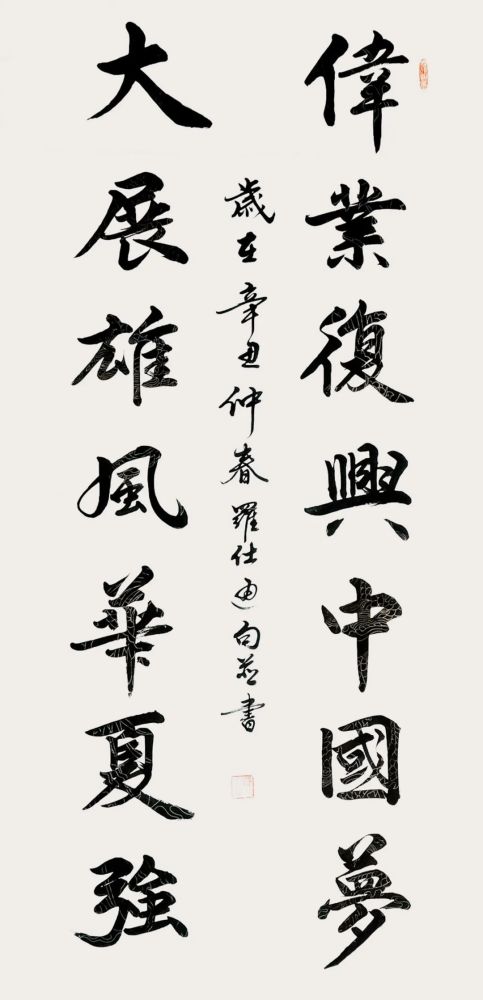 偉業復興中國夢
大展雄風華夏強
歲在辛丑仲春羅仕通句並書